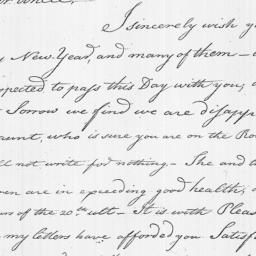 I sincerely wish yo
New Year, and many of them -
pected to pass this Day with you,
Sorrow we find we are disapp
aunt, who is sure you are on the Ro
ll not write for nothing - She and
ren are in exceeding good health,
rs of the 20th ult - It is with Pleas
my letters have afforded you Satisf